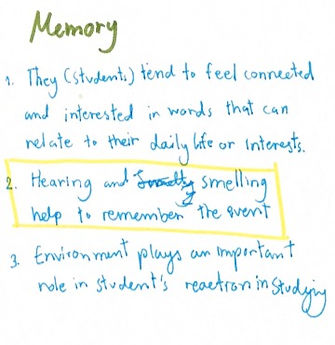 Memory
1. They (students) tend to feel connected
and interested in words that can
relate to their daily life or interests.
2. Hearing and smelling
help to remember the event
3. Environment plays an important
role in student's reaction in studying